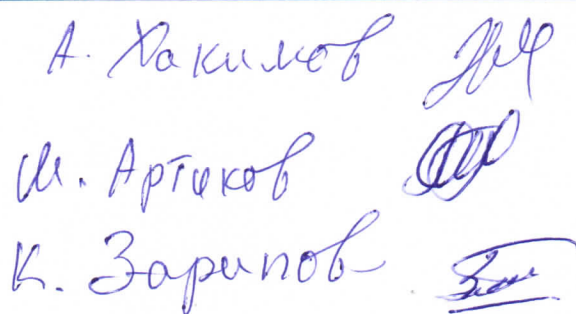 А. Хакимов
М. Артиков
К. Зарипов